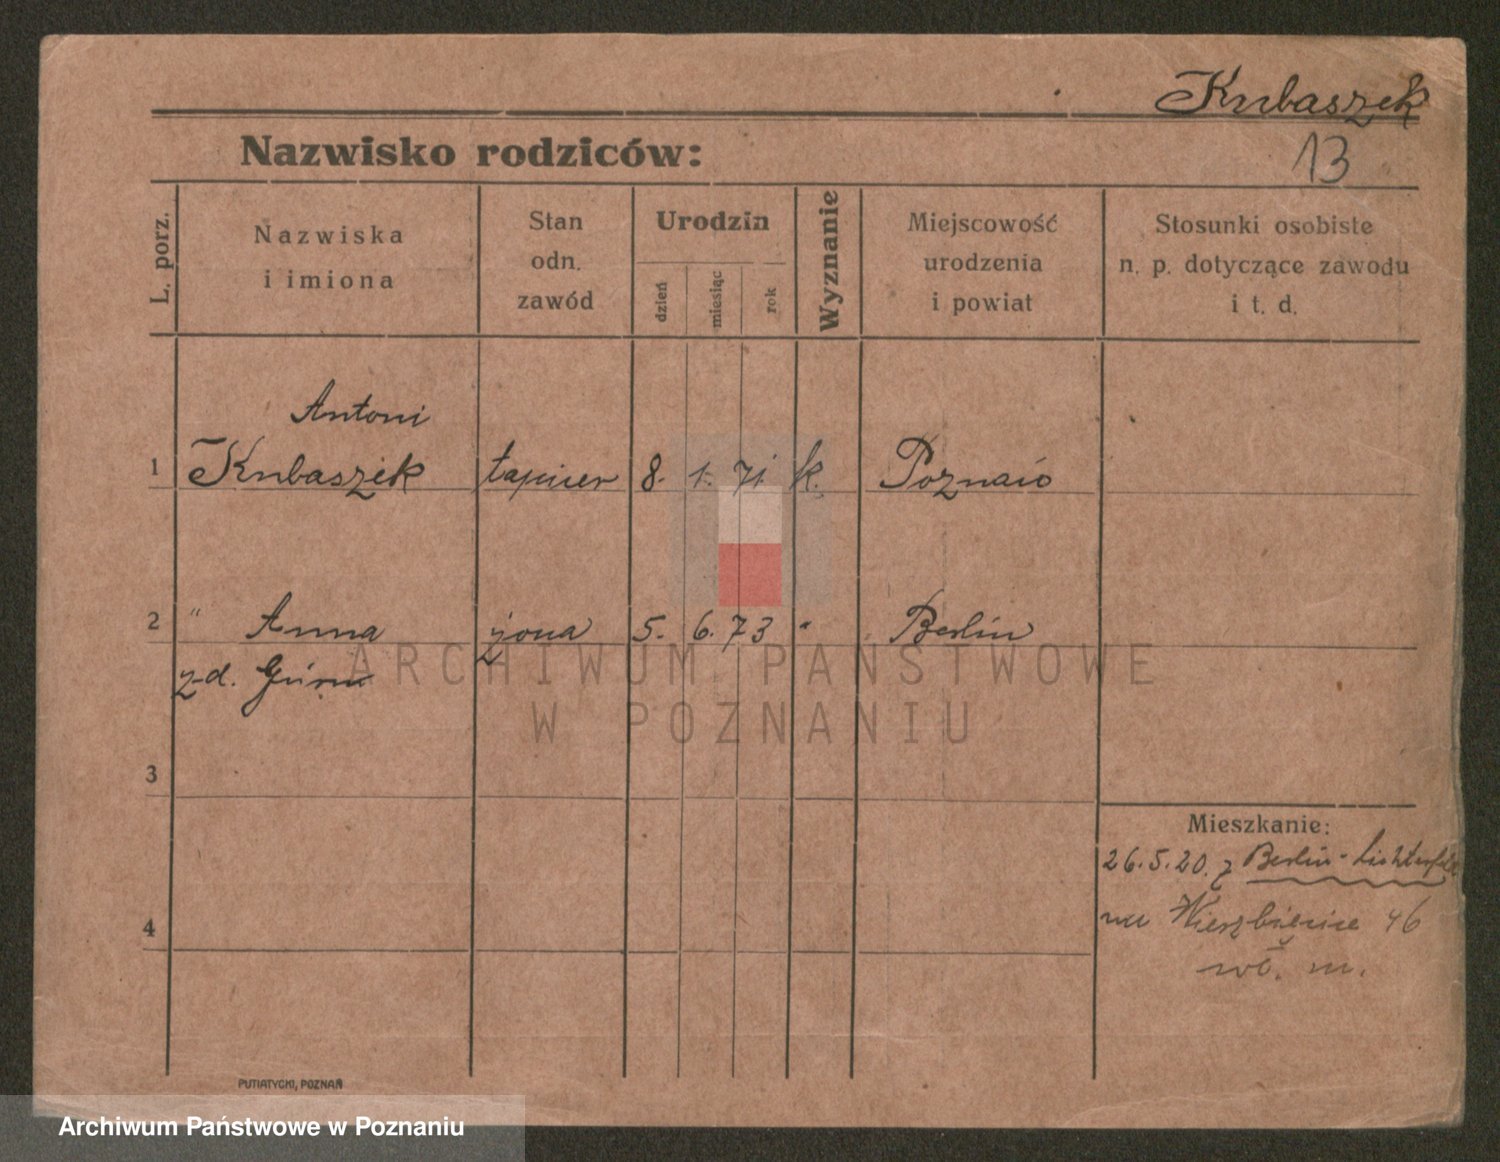 Kubaszek
Nazwisko rodziców:
13
L. porz.
Nazwiska
i imiona
Stan
odn.
zawód
Urodzin
dzień
miesiąc
rok
Wyznanie
Miejscowość
urodzenia
i powiat
Stosunki osobiste
n. p. dotyczące zawodu
i t. d.
Antoni
1 Kubaszek tapicer 8. 1. 71. k. Poznań
2 " Anna żona 5. 6. 73 " Berlin
z-d.
ARCHIWUM PAŃSTWOWE
W POZNANIU
3
Mieszkanie:
26.5.20. z Berlin-Lichterfelde
na Wierzbięcice 46
4
wł. m.
PUTIATYCKI, POZNAŃ
Archiwum Państwowe w Poznaniu